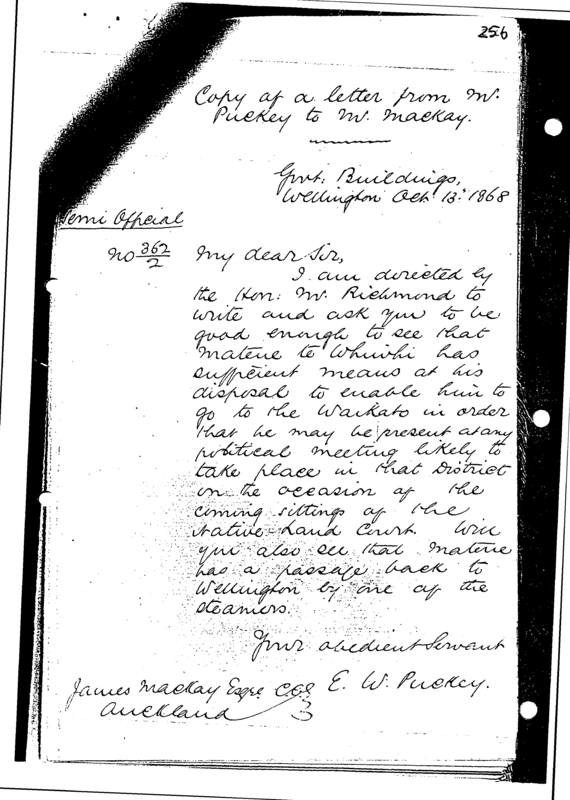 256
Copy of a letter from Mr.
Puckey to Mr. Mackay.
Govt: Buildings,
Wellington Oct: 13: 1868
Semi Official
No 362/2
My dear Sir,
I am directed by
the Hon: Mr. Richmond to
write and ask you to be
good enough to see that
Matene te Whiwhi has
sufficient means at his
disposal to enable him to
go to the Waikato in order
that he may be present at any
political meeting likely to
take place in that District
on the occasion of the
coming sittings of the
Native Land Court. Will
you also see that Matene
has a passage back to
Wellington by one of the
steamers.
Your obedient Servant
E. W. Puckey.
James Mackay Esqre
Auckland